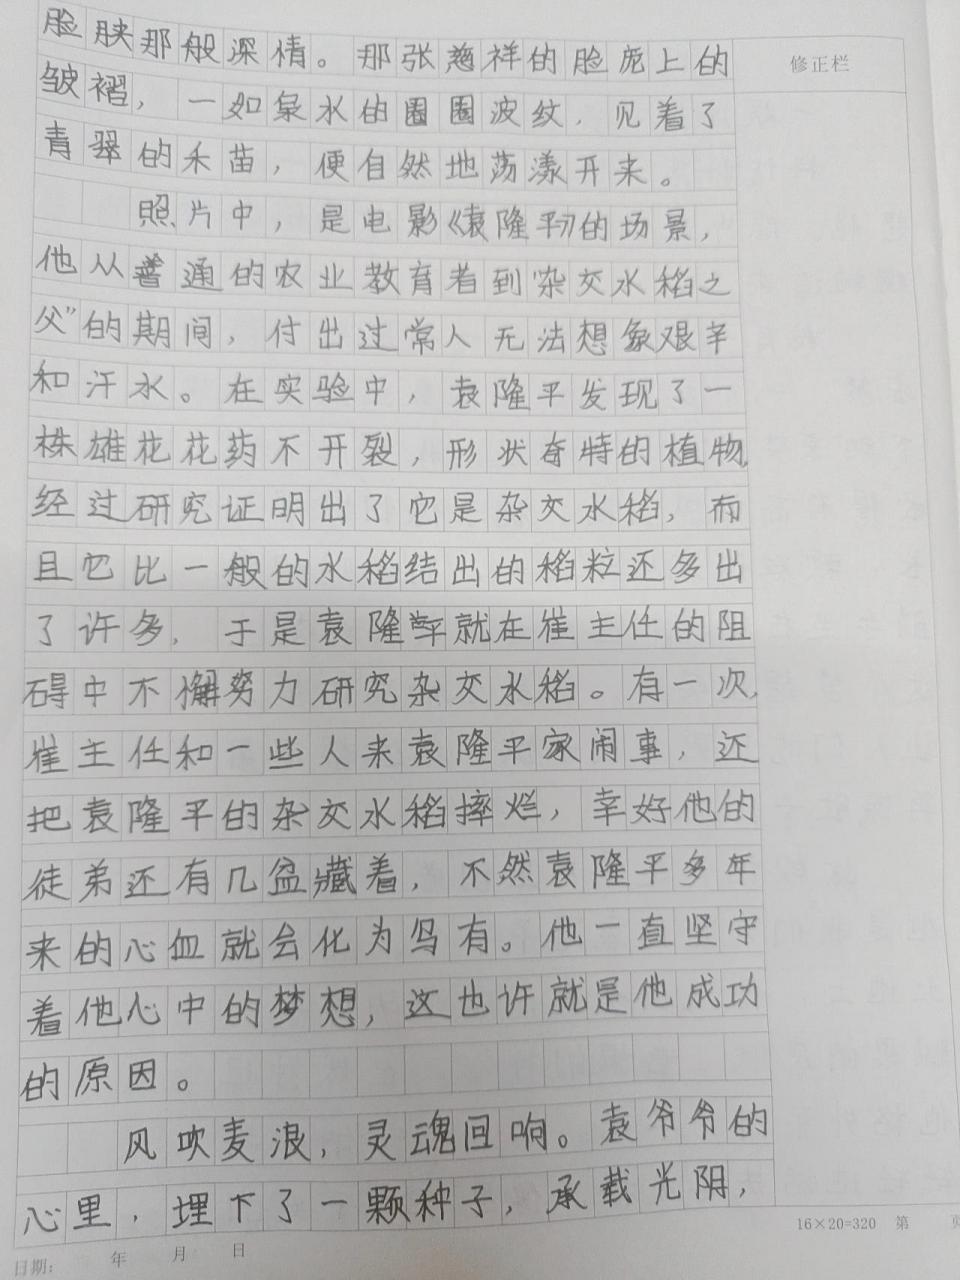 脸肤那般深情。那张慈祥的脸庞上的
修正栏
皱褶，一如泉水的圈圈波纹，见着了
青翠的禾苗，便自然地荡漾开来。
照片中，是电影《袁隆平》的场景，
他从普通的农业教育者到杂交水稻之
父”的期间，付出过常人无法想象艰辛
和汗水。在实验中，袁隆平发现了一
株雄花花药不开裂，形状奇特的植物，
经过研究证明出了它是杂交水稻，而
且它比一般的水稻结出的稻粒还多出
了许多，于是袁隆平就在崔主任的阻
碍中不懈努力研究杂交水稻。有一次，
崔主任和一些人来袁隆平家闹事，还
把袁隆平的杂交水稻摔烂，幸好他的
徒弟还有几盆藏着，不然袁隆平多年
来的心血就会化为乌有。他一直坚守
着他心中的梦想，这也许就是他成功
的原因。
风吹麦浪，灵魂回响。袁爷爷的
心里，埋下了一颗种子，承载光阴，
16×20=320 第 页
日期： 年 月 日